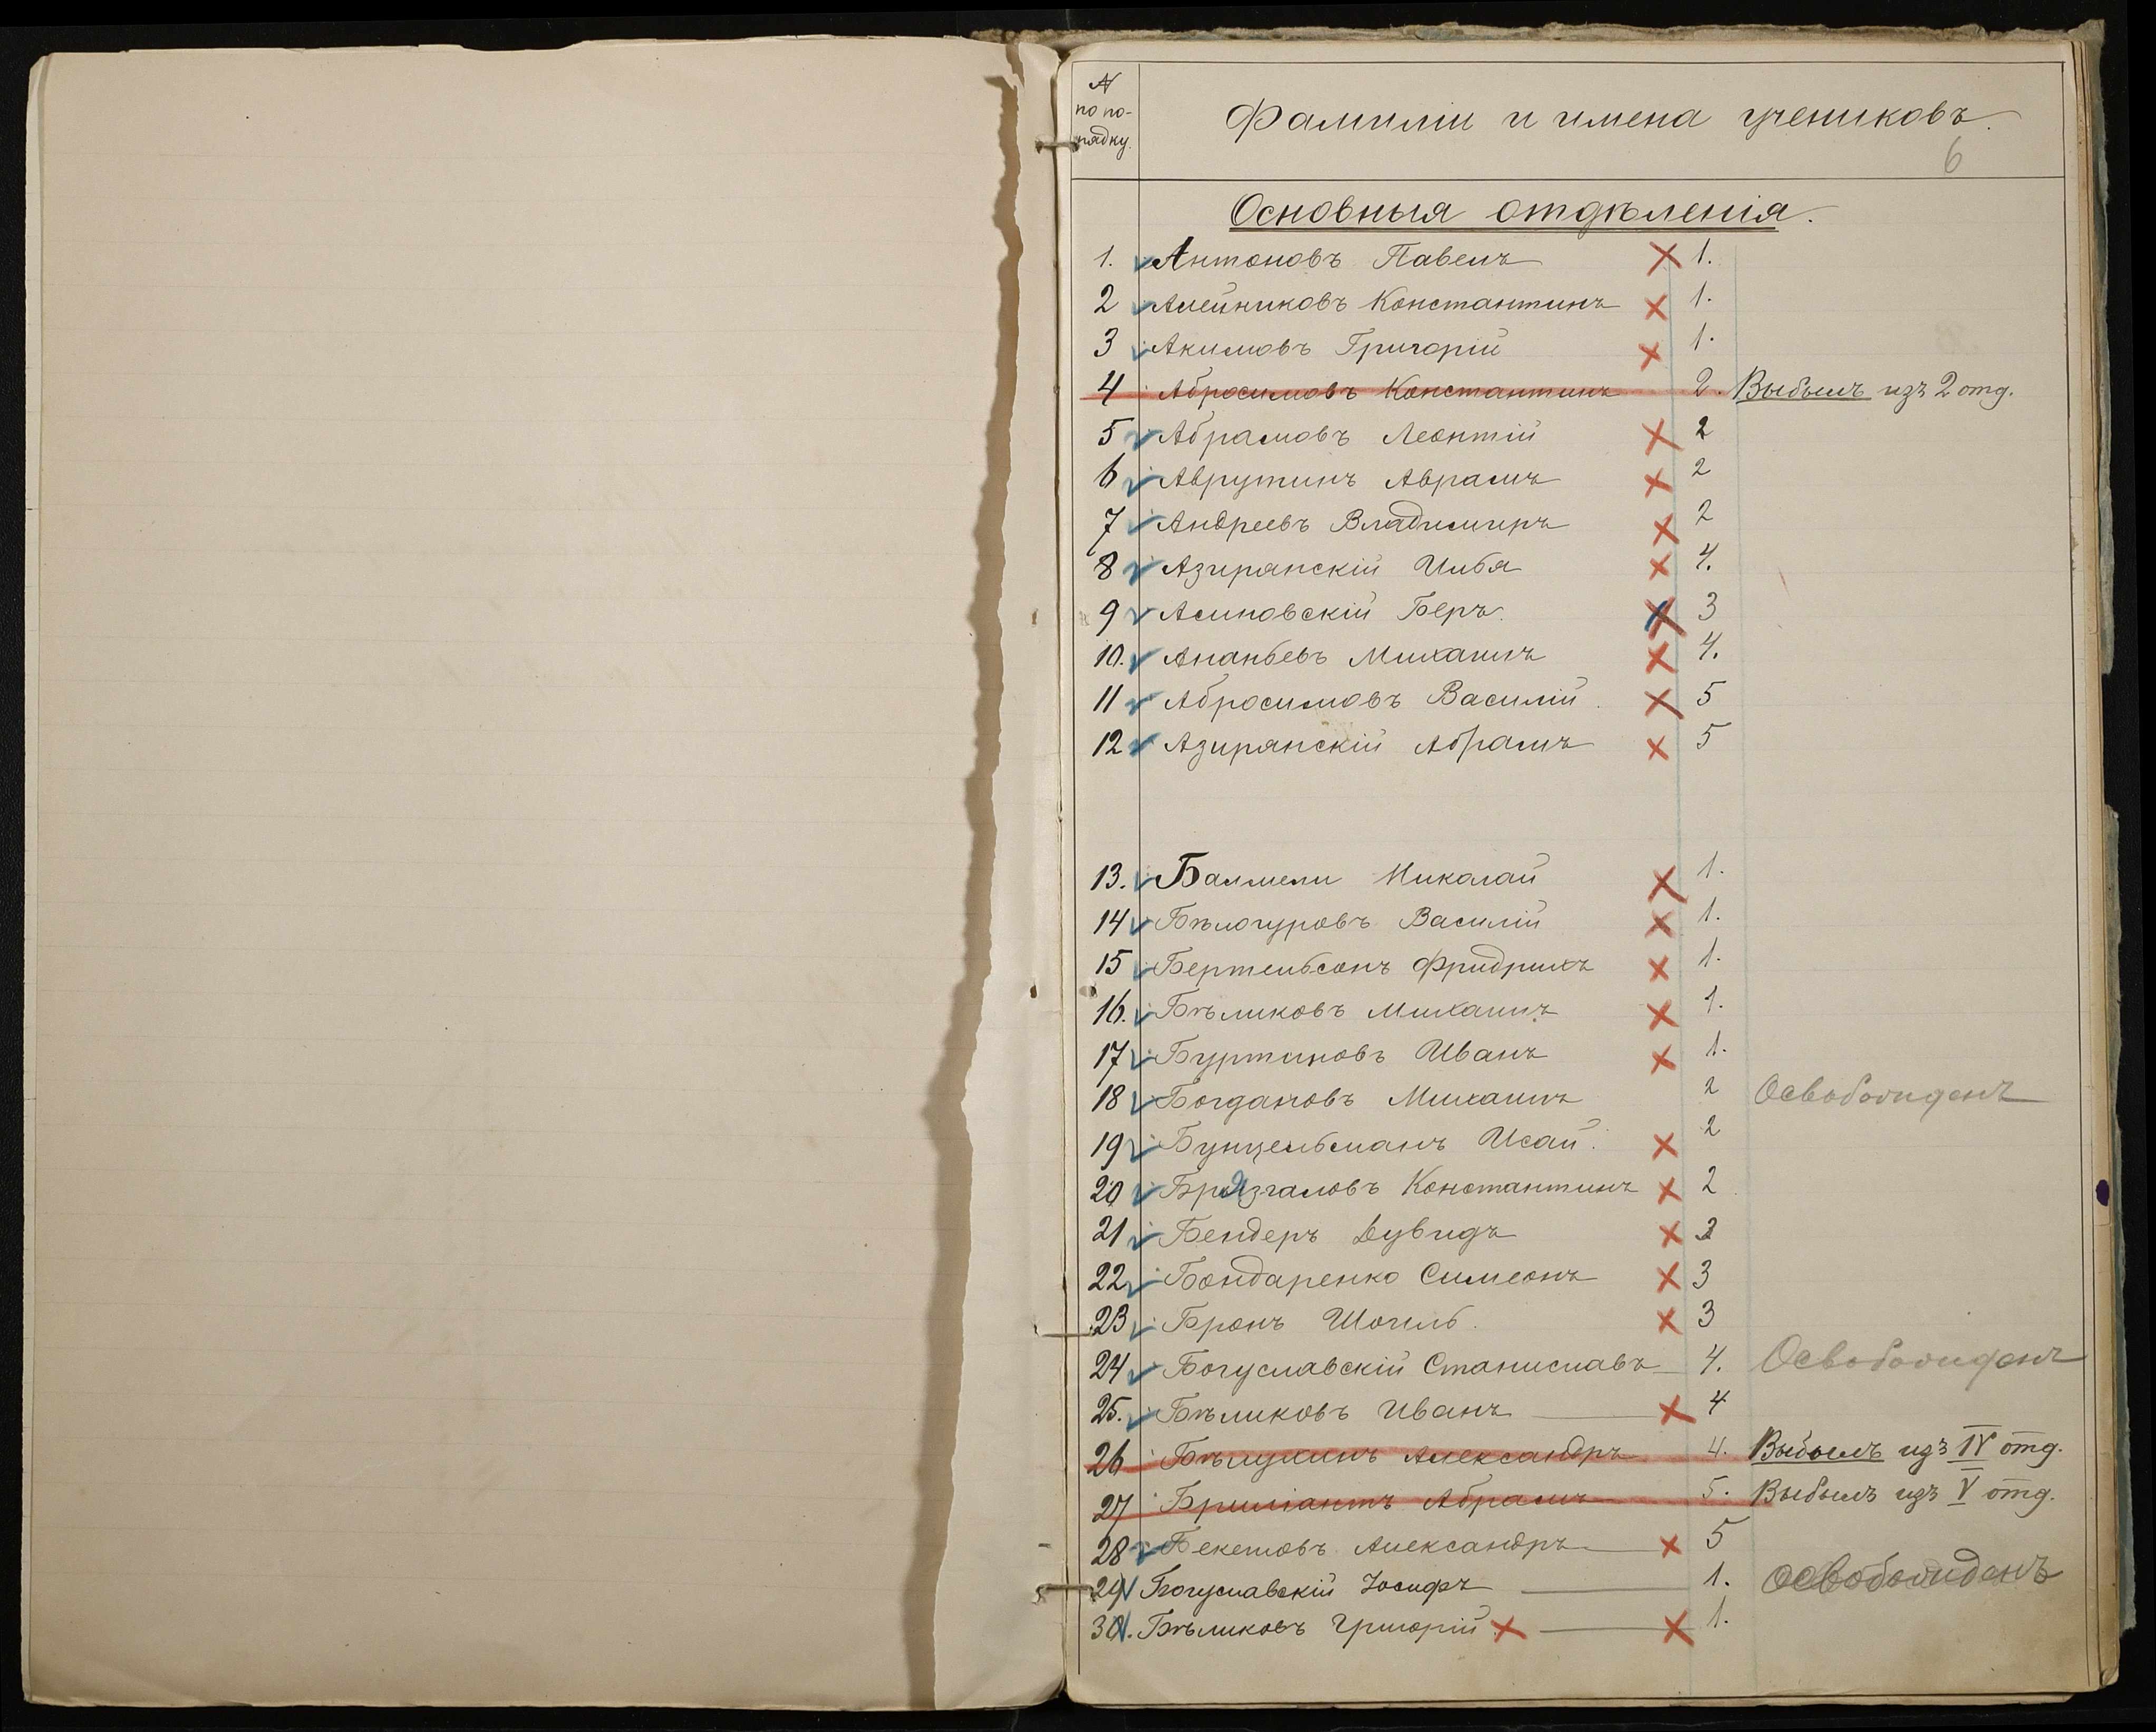 №
по по-
рядку.
Фамиліи и имена учениковъ.
6
Основныя отдѣленія.
1. Антоновъ Павелъ 1.
2 Алейниковъ Константинъ 1.
3 Акимовъ Григорій 1.
4 Абросимовъ Константинъ 2. Выбылъ изъ 2 отд.
5 Абрамовъ Леонтій 2
6 Аврутинъ Аврамъ 2
7 Андреевъ Владимиръ 2
8 Азирянскій Илья 4.
9 Асиновскій Беръ. 3
10. Ананьевъ Михаилъ 4.
11 Абросимовъ Василій. 5
12 Азирянскій Абрамъ 5
13. Николай 1.
14 Бѣлогуровъ Василій 1.
15 Бертельсонъ Фридрихъ 1.
16. Бѣликовъ Михаилъ 1.
17 Буртиновъ Иванъ 1.
18 Богдановъ Михаилъ 2 Освобожденъ
19 Бунцельманъ Исай. 2
20 Брязгаловъ Константинъ 2
21 Бендеръ Дувидъ 2
22 Бондаренко Симеонъ 3
23 Бронъ Шогиль. 3
24 Богуславскій Станиславъ 4. Освобожденъ
25. Бѣликовъ Иванъ 4
26 Александръ 4. Выбылъ изъ IV отд.
27 Бриліантъ Абрамъ 5. Выбылъ изъ V отд.
28 Бекетовъ Александръ 5
29 Богуславскій Іосифъ 1. Освобожденъ
30. Бѣликовъ Григорій 1.